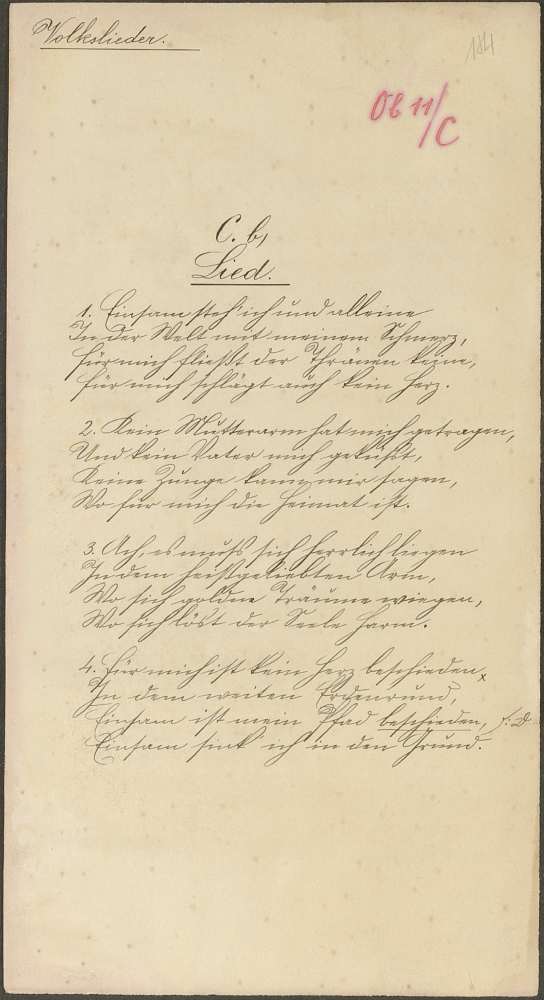 Volkslieder.
184
Ob 11/C
C. b,
Lied.
1. Einsam steh' ich und alleine
In der Welt mit meinem Schmerz,
Für mich fließt der Thränen keine,
Für mich schlägt auch kein Herz.
2. Kein Mutterarm hat mich getragen,
Und kein Vater mich geküßt,
Keine Zunge kann mir sagen,
Wo für mich die Heimat ist.
3. Ach, es muß sich herrlich liegen
In dem heißgeliebten Arm,
Wo sich goldne Träume wiegen,
Wo sich löst der Seele Harm.
4. Für mich ist kein Herz beschieden x
In dem weiten Erdenrund,
Einsam ist mein Pfad beschieden, s. D.
Einsam sink' ich in den Grund.